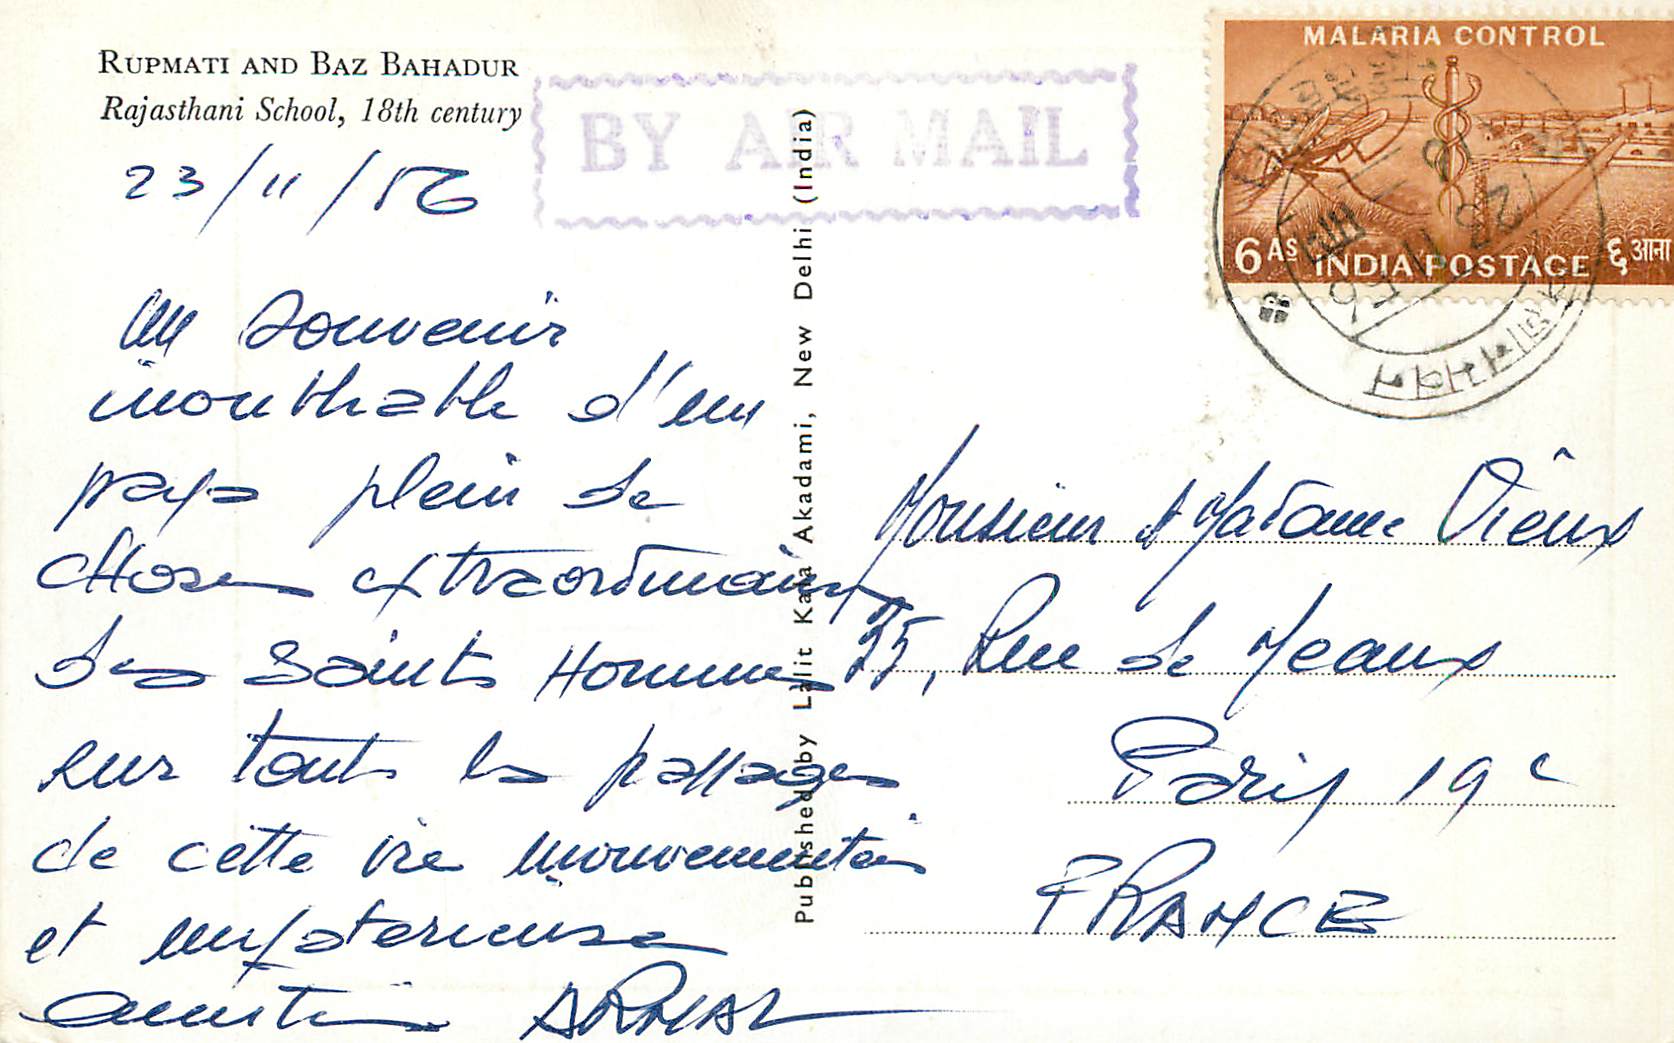 RUPMATI AND BAZ BAHADUR
Rajasthani School, 18th century
BY AIR MAIL
MALARIA CONTROL
6 AS INDIA POSTAGE ६ आना
23/11/56
Un souvenir
inoubliable d'un
pays plein de
choses extraordinaires
des Saints Hommes
sur tout les passages
de cette vie mouvementée
et mystérieuse
ARMAL
Published by Lalit Kala Akadami, New Delhi (India)
Monsieur et Madame Vieux
35, Rue de Meaux
Paris 19e
FRANCE